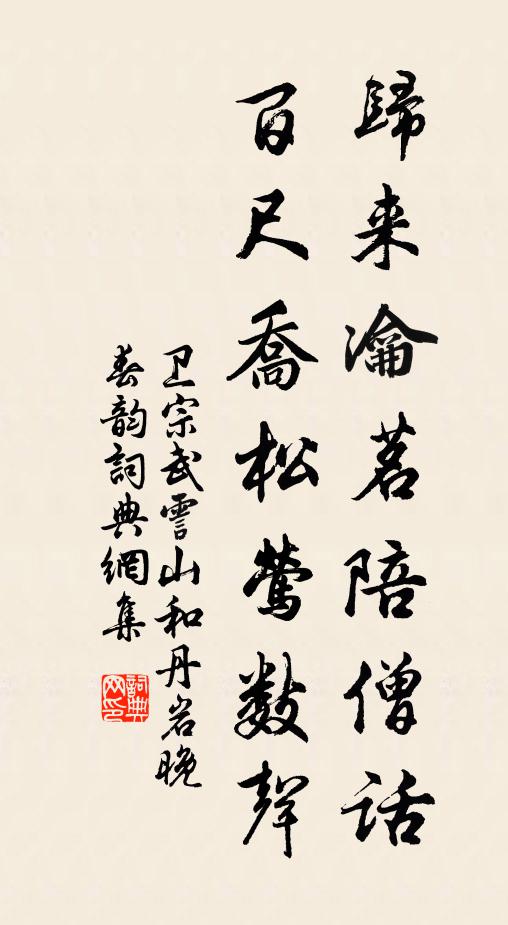 歸来瀹茗陪僧話
百尺喬松鶯數聲
卫宗武雲山和丹岩晚
春韵詞典網集
詞典网印